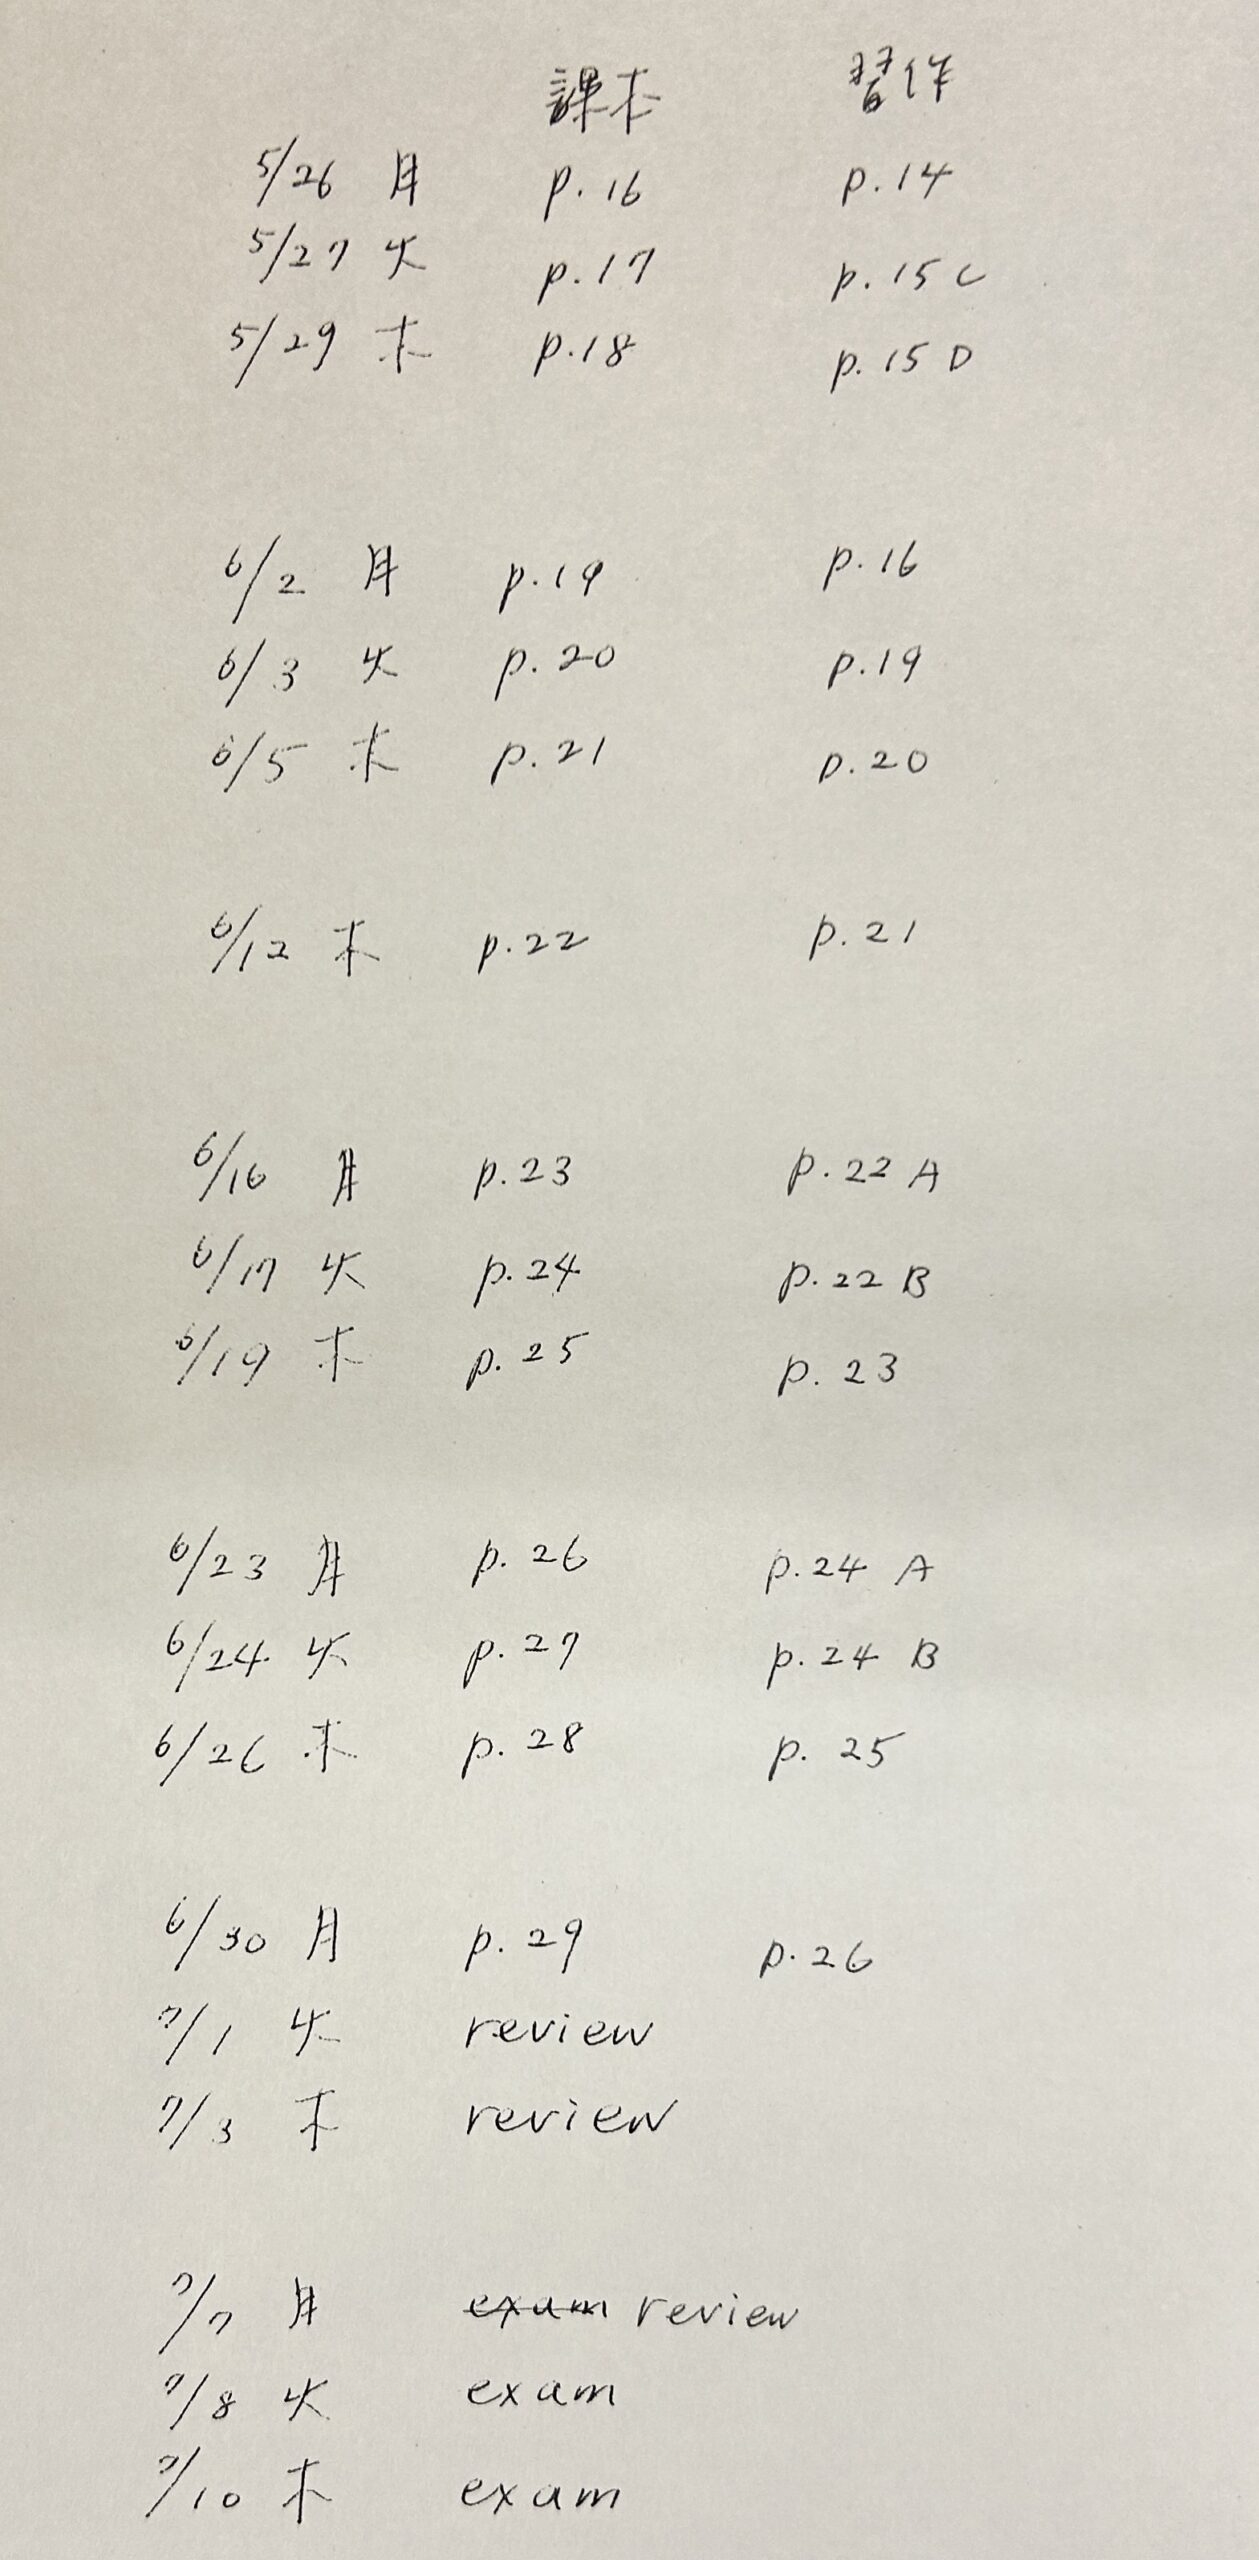 課本 習作
5/26 月 p.16 p.14
5/27 火 p.17 p.15 C
5/29 木 p.18 p.15 D
6/2 月 p.19 p.16
6/3 火 p.20 p.19
6/5 木 p.21 p.20
6/12 木 p.22 p.21
6/16 月 p.23 p.22 A
6/17 火 p.24 p.22 B
6/19 木 p.25 p.23
6/23 月 p.26 p.24 A
6/24 火 p.27 p.24 B
6/26 木 p.28 p.25
6/30 月 p.29 p.26
7/1 火 review
7/3 木 review
7/7 月 exam review
7/8 火 exam
7/10 木 exam